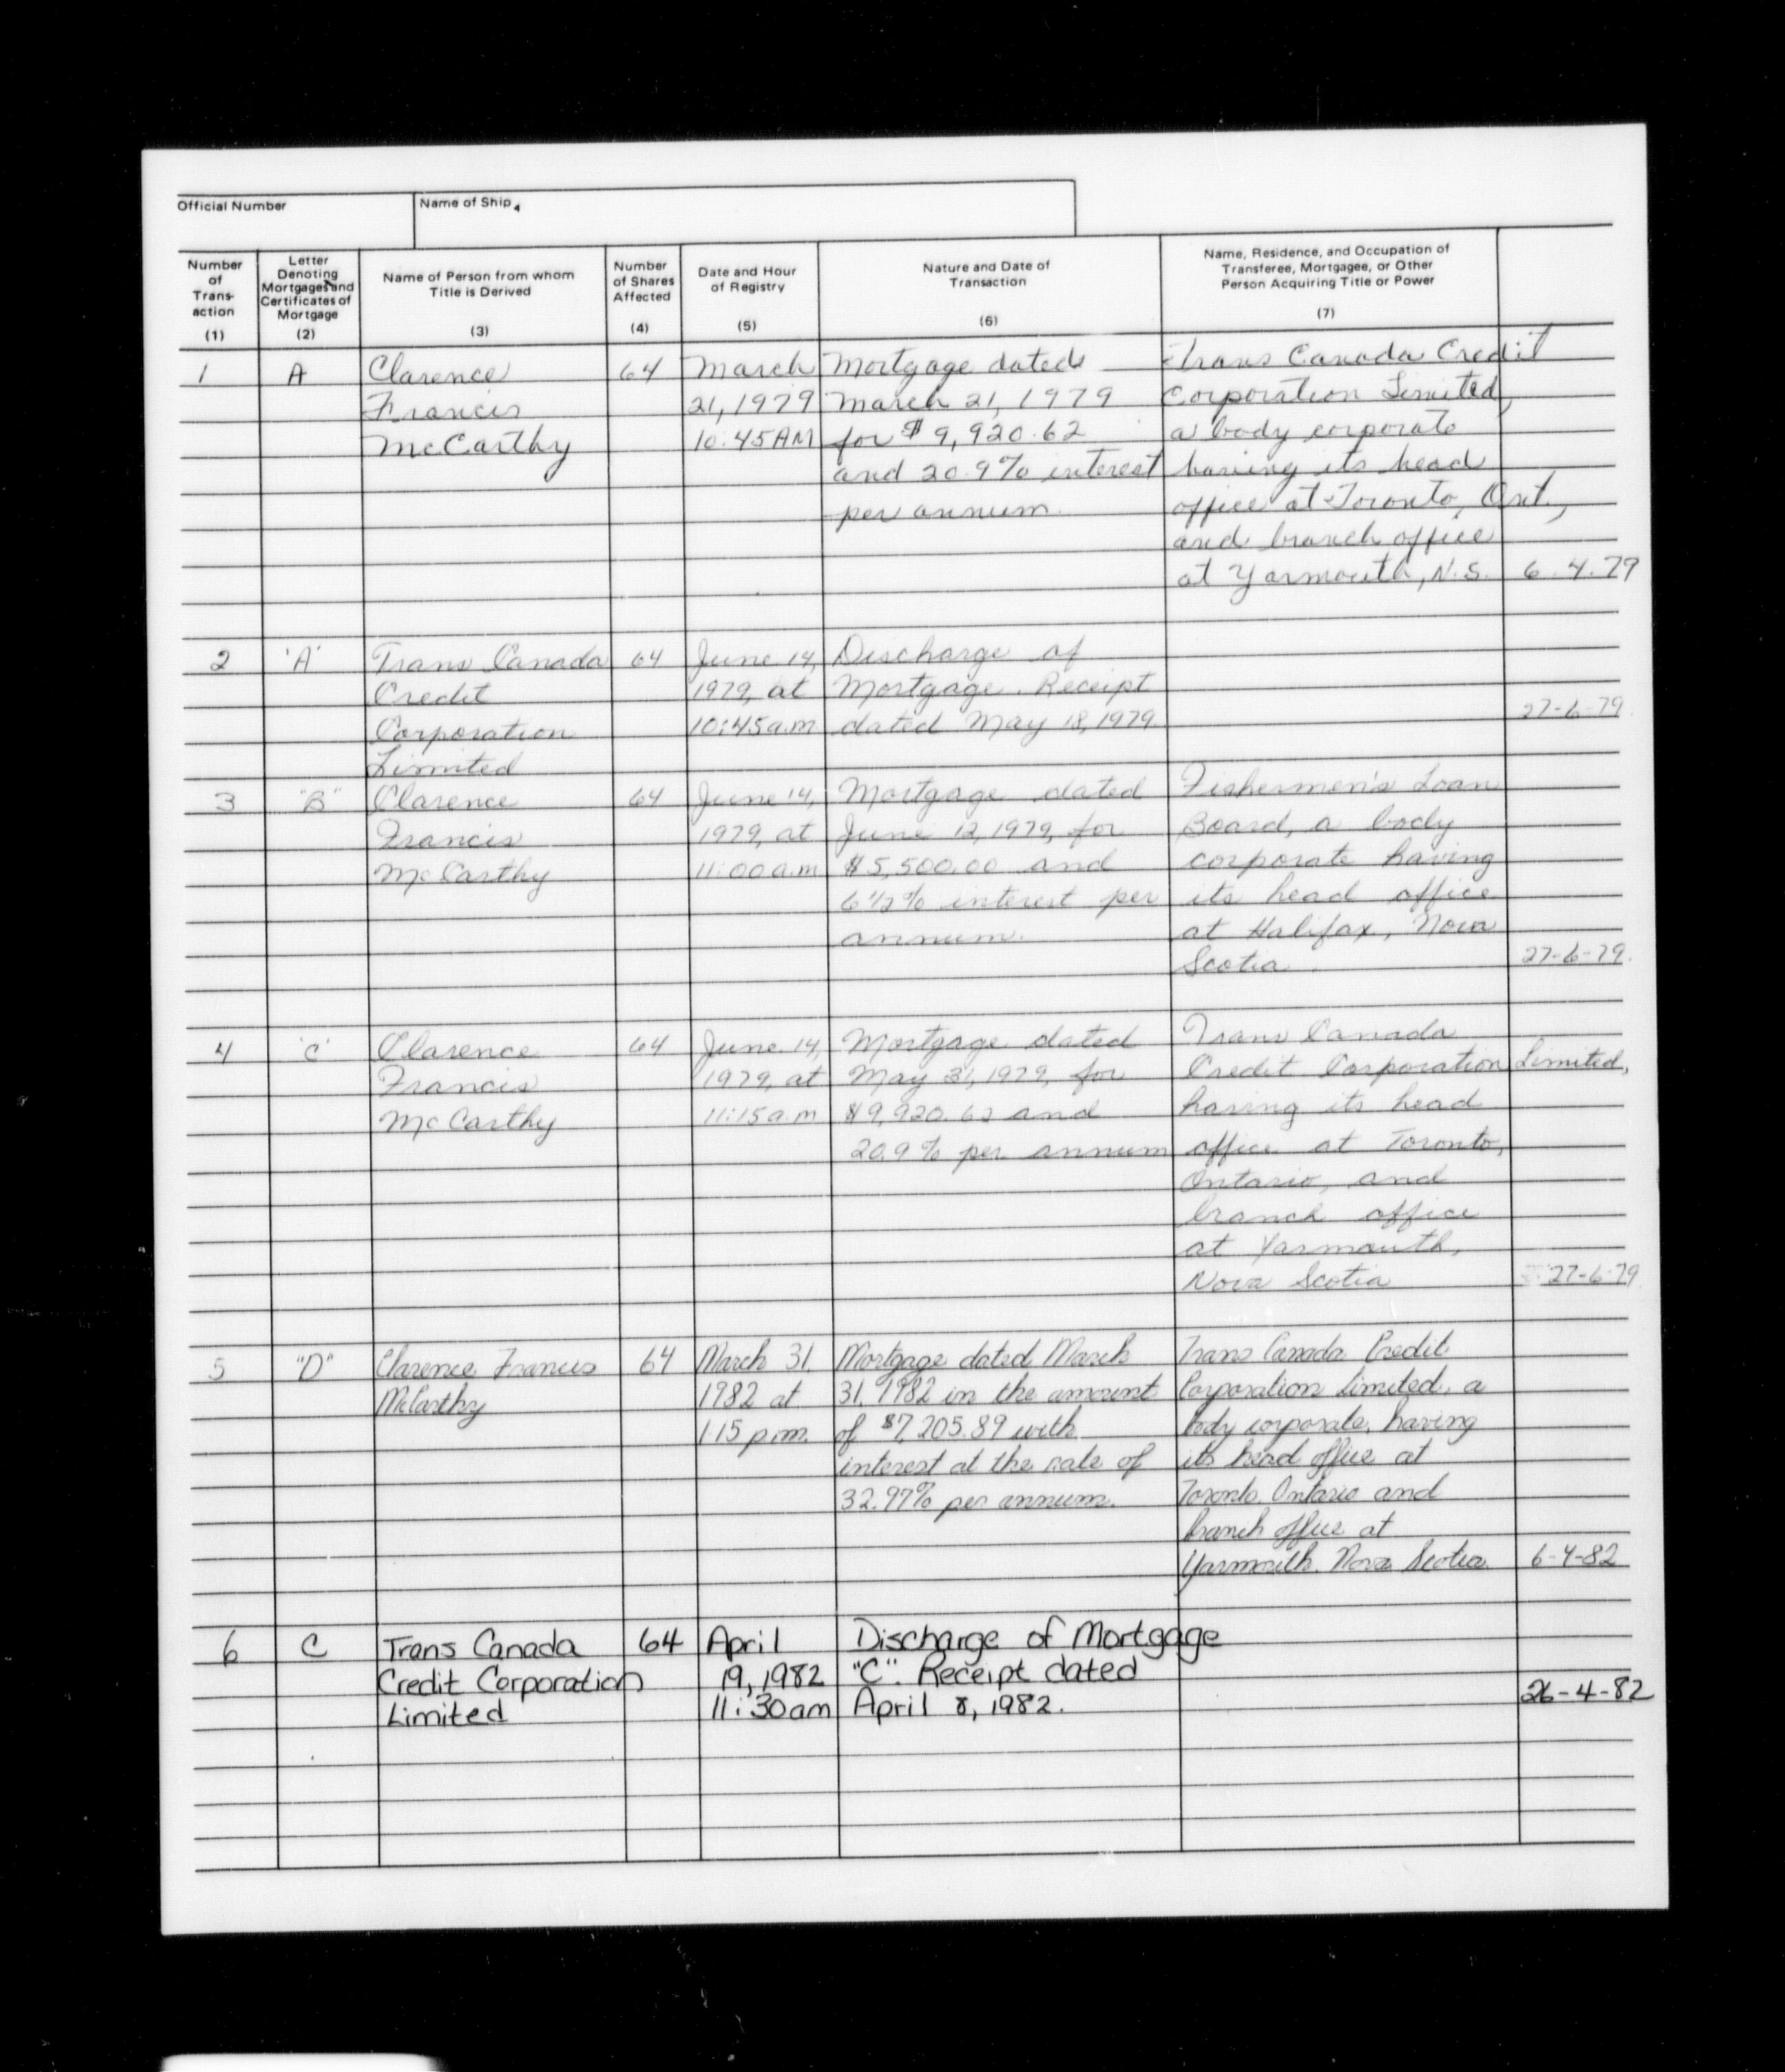 Official Number
Name of Ship
Number of Trans- action (1)
Letter Denoting Mortgages and Certificates of Mortgage (2)
Name of Person from whom Title is Derived (3)
Number of Shares Affected (4)
Date and Hour of Registry (5)
Nature and Date of Transaction (6)
Name, Residence, and Occupation of Transferee, Mortgagee, or Other Person Acquiring Title or Power (7)
1 A Clarence 64 March Mortgage dated Trans Canada Credit
Francis 21, 1979 March 21, 1979 Corporation Limited,
McCarthy 10:45AM for $ 9,920.62 a body corporate
and 20.9% interest having its head
per annum. office at Toronto, Ont.,
and branch office
at Yarmouth, N.S. 6.4.79
2 'A' Trans Canada 64 June 14, Discharge of
Credit 1979, at Mortgage. Receipt
Corporation 10:45a.m dated May 18, 1979. 27-6-79.
Limited
3 "B" Clarence 64 June 14, Mortgage dated Fishermen's Loan
Francis 1979, at June 12, 1979, for Board, a body
McCarthy 11:00a.m $5,500.00 and corporate having
6 1/2% interest per its head office
annum. at Halifax, Nova
Scotia. 27-6-79.
4 'C' Clarence 64 June 14, Mortgage dated Trans Canada
Francis 1979, at May 31, 1979, for Credit Corporation Limited,
McCarthy 11:15a.m $9,920.62 and having its head
20.9% per annum office at Toronto,
Ontario, and
branch office
at Yarmouth,
Nova Scotia 27-6-79
5 "D" Clarence Francis 64 March 31, Mortgage dated March Trans Canada Credit
McCarthy 1982 at 31, 1982 in the amount Corporation Limited, a
1:15 p.m. of $7,205.89 with body corporate, having
interest at the rate of its head office at
32.97% per annum. Toronto, Ontario and
branch office at
Yarmouth, Nova Scotia. 6-4-82
6 C Trans Canada 64 April Discharge of Mortgage
Credit Corporation 19, 1982 "C". Receipt dated
Limited 11:30am April 8, 1982. 26-4-82